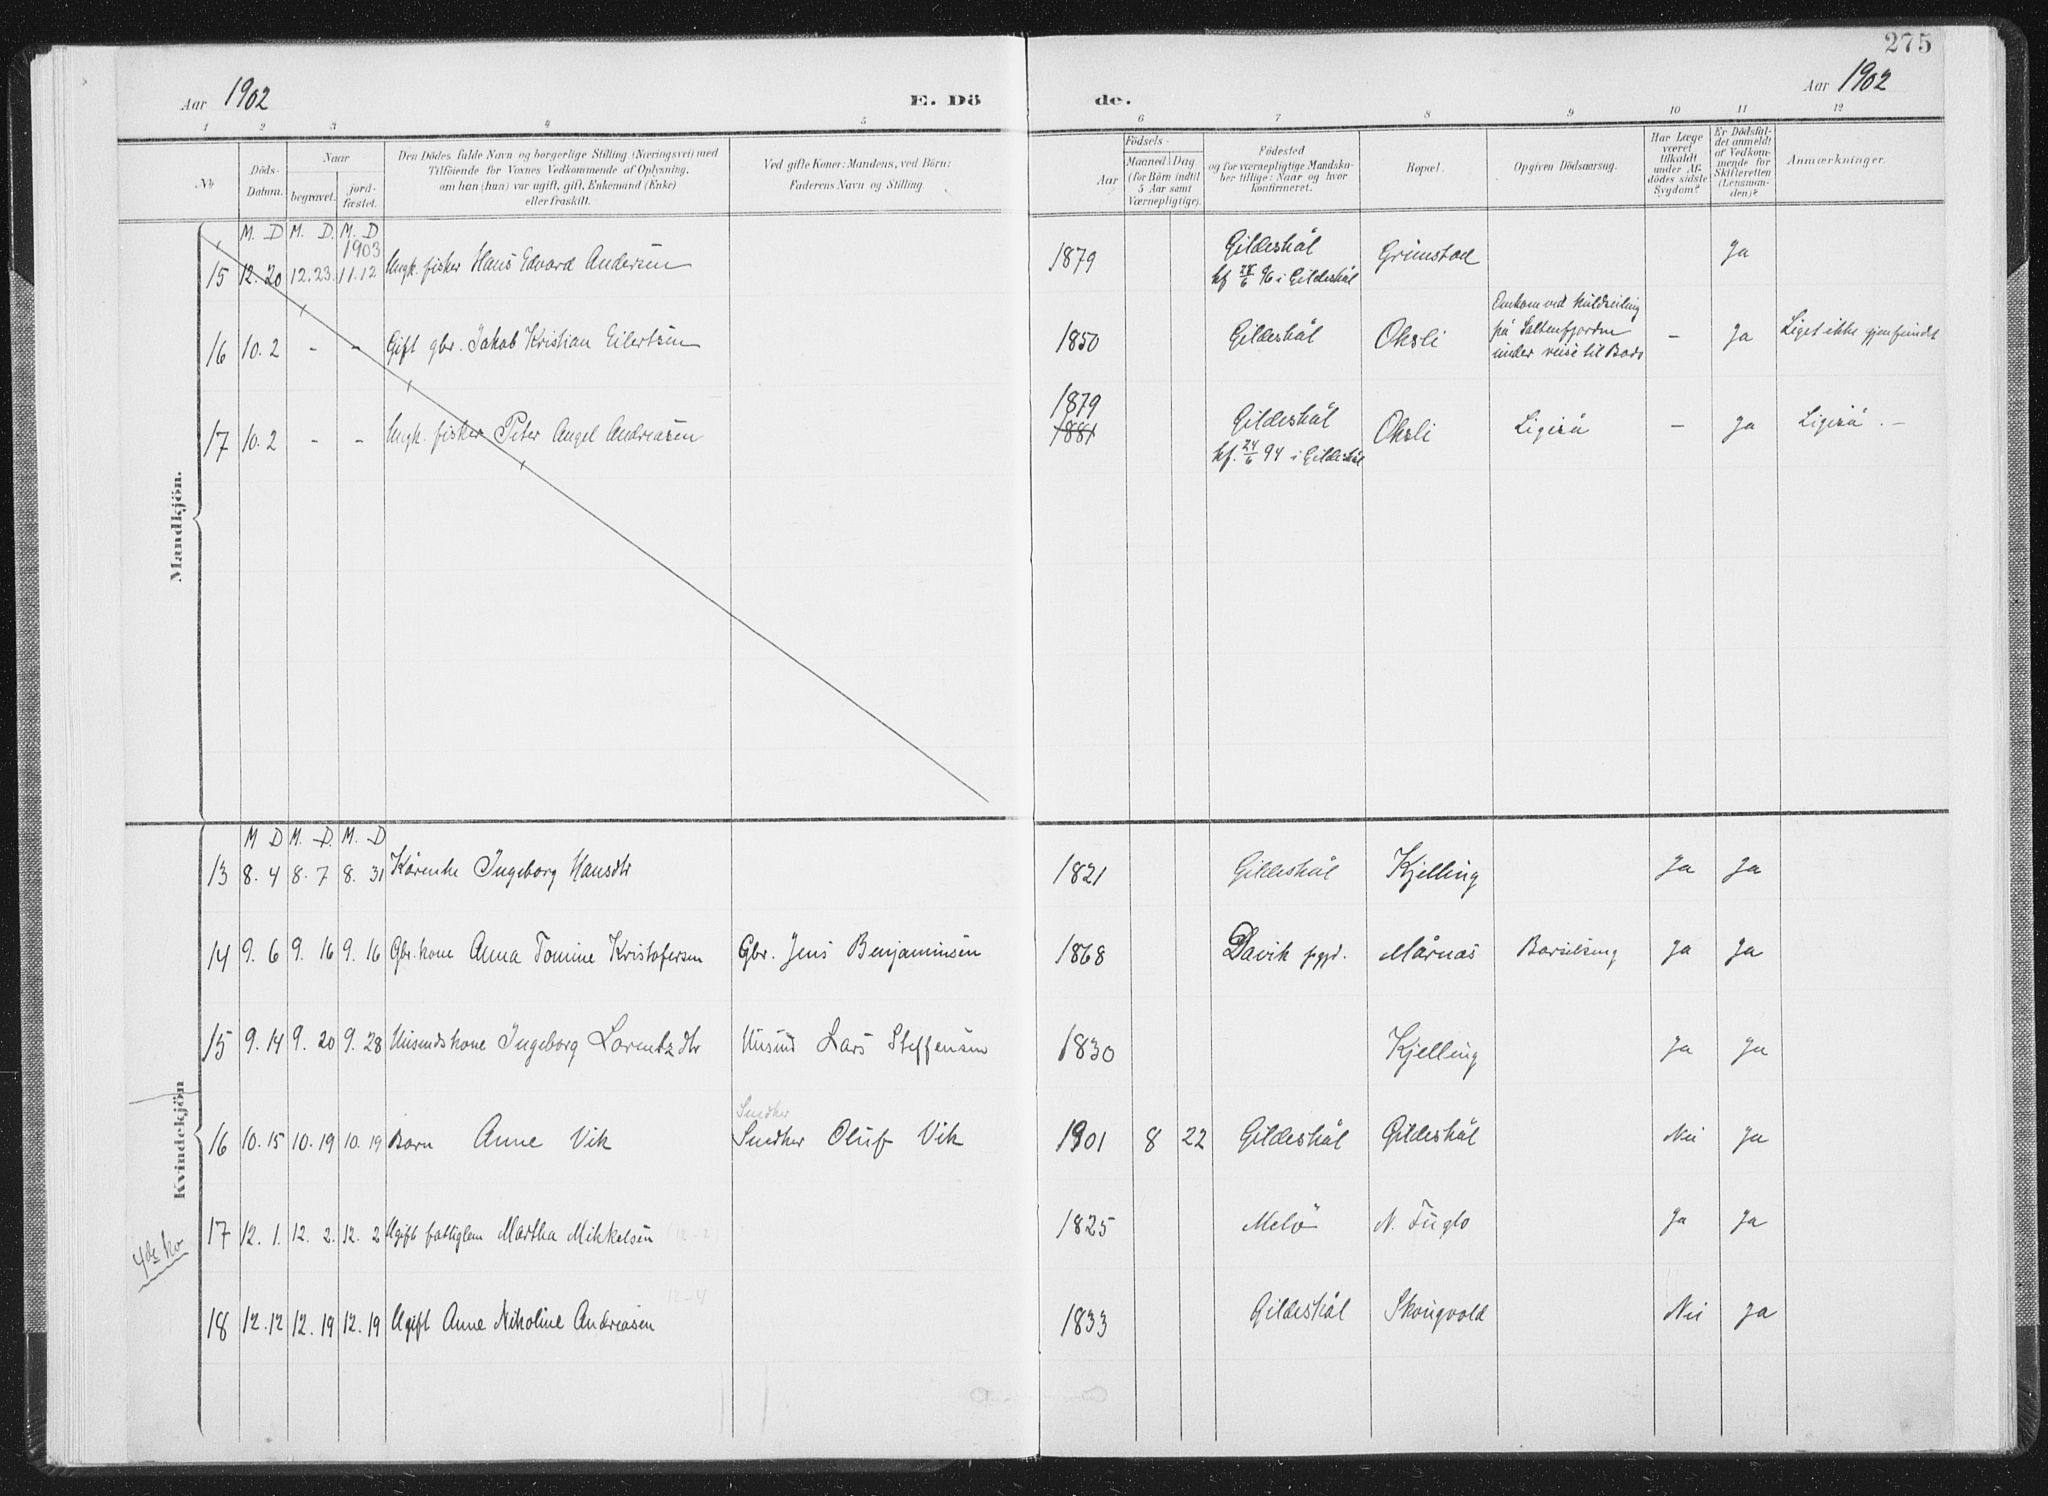 275
Aar 1902
E. Dö
de.
Aar 1902
1 2 3 4 5 6 7 8 9 10 11 12
No
Döds-Datum.
Naar
begravet.
jord-fæstet.
Den Dödes fulde Navn og borgerlige Stilling (Næringsvei) med
Tilföiende for Voxnes Vedkommende af Oplysning,
om han (hun) var ugift, gift, Enkemand (Enke)
eller fraskilt.
Ved gifte Koner: Mandens, ved Börn:
Faderens Navn og Stilling.
Födsels-
Aar
Maaned Dag
(for Börn indtil
5 Aar samt
Værnepligtige).
Födested
og for værnepligtige Mandska-
ber tillige: Naar og hvor
konfirmeret.
Bopæl.
Opgiven Dödsaarsag.
Har Læge
været
tilkaldt
under Af-
dödes sidste
Sygdom?
Er Dödsfal-
det anmeldt
af Vedkom-
mende for
Skifteretten
(Lensman-
den)?
Anmærkninger.
Mandkjön.
M. D M. D. M. D
1903
15 12. 20 12. 23. 11. 12 Ungk. fisker Hans Edvard Andersen 1879 Gildeskål Grimstad Ja
kf 28/6 96 i Gildeskål
Omkom ved kuldseiling
16 10. 2 - - Gift gbr. Jakob Kristian Eilertsen 1850 Gildeskål Oksli på Saltenfjorden - Ja Liget ikke gjenfundet
under reise til Bodö
1879
17 10. 2 - - Ungk. fisker Peter Angel Andreasen 1881 Gildeskål Oksli Ligeså - Ja Ligeså. -
kf. 24/6 94 i Gildeskål
Kvindekjön
M D M. D. M. D
13 8. 4 8. 7 8. 31 Kårenke Ingeborg Hansdtr 1821 Gildeskål Kjelling Ja Ja
14 9. 6 9. 16 9. 16 Gbr. kone Anna Tomine Kristofersen Gbr. Jens Benjaminsen 1868 Davik prgjd. Mårnas Barselseng Ja Ja
15 9. 14 9. 20 9. 28 Husmdskone Ingeborg Lorentzdtr Husmd Lars Steffensen 1830 Kjelling Ja Ja
Snedker
16 10. 15 10. 19 10. 19 Barn Anne Vik Snedker Oluf Vik 1901 8 22 Gildeskål Gildeskål Nei Ja
17 12. 1. 12. 2. 12. 2 Ugift fattiglem Martha Mikkelsen (12-2) 1825 Melö N. Fuglö Ja Ja
12-4
18 12. 12 12. 19 12. 19 Ugift Anne Nikoline Andreasen 1833 Gildeskål Skougvold Nei Ja